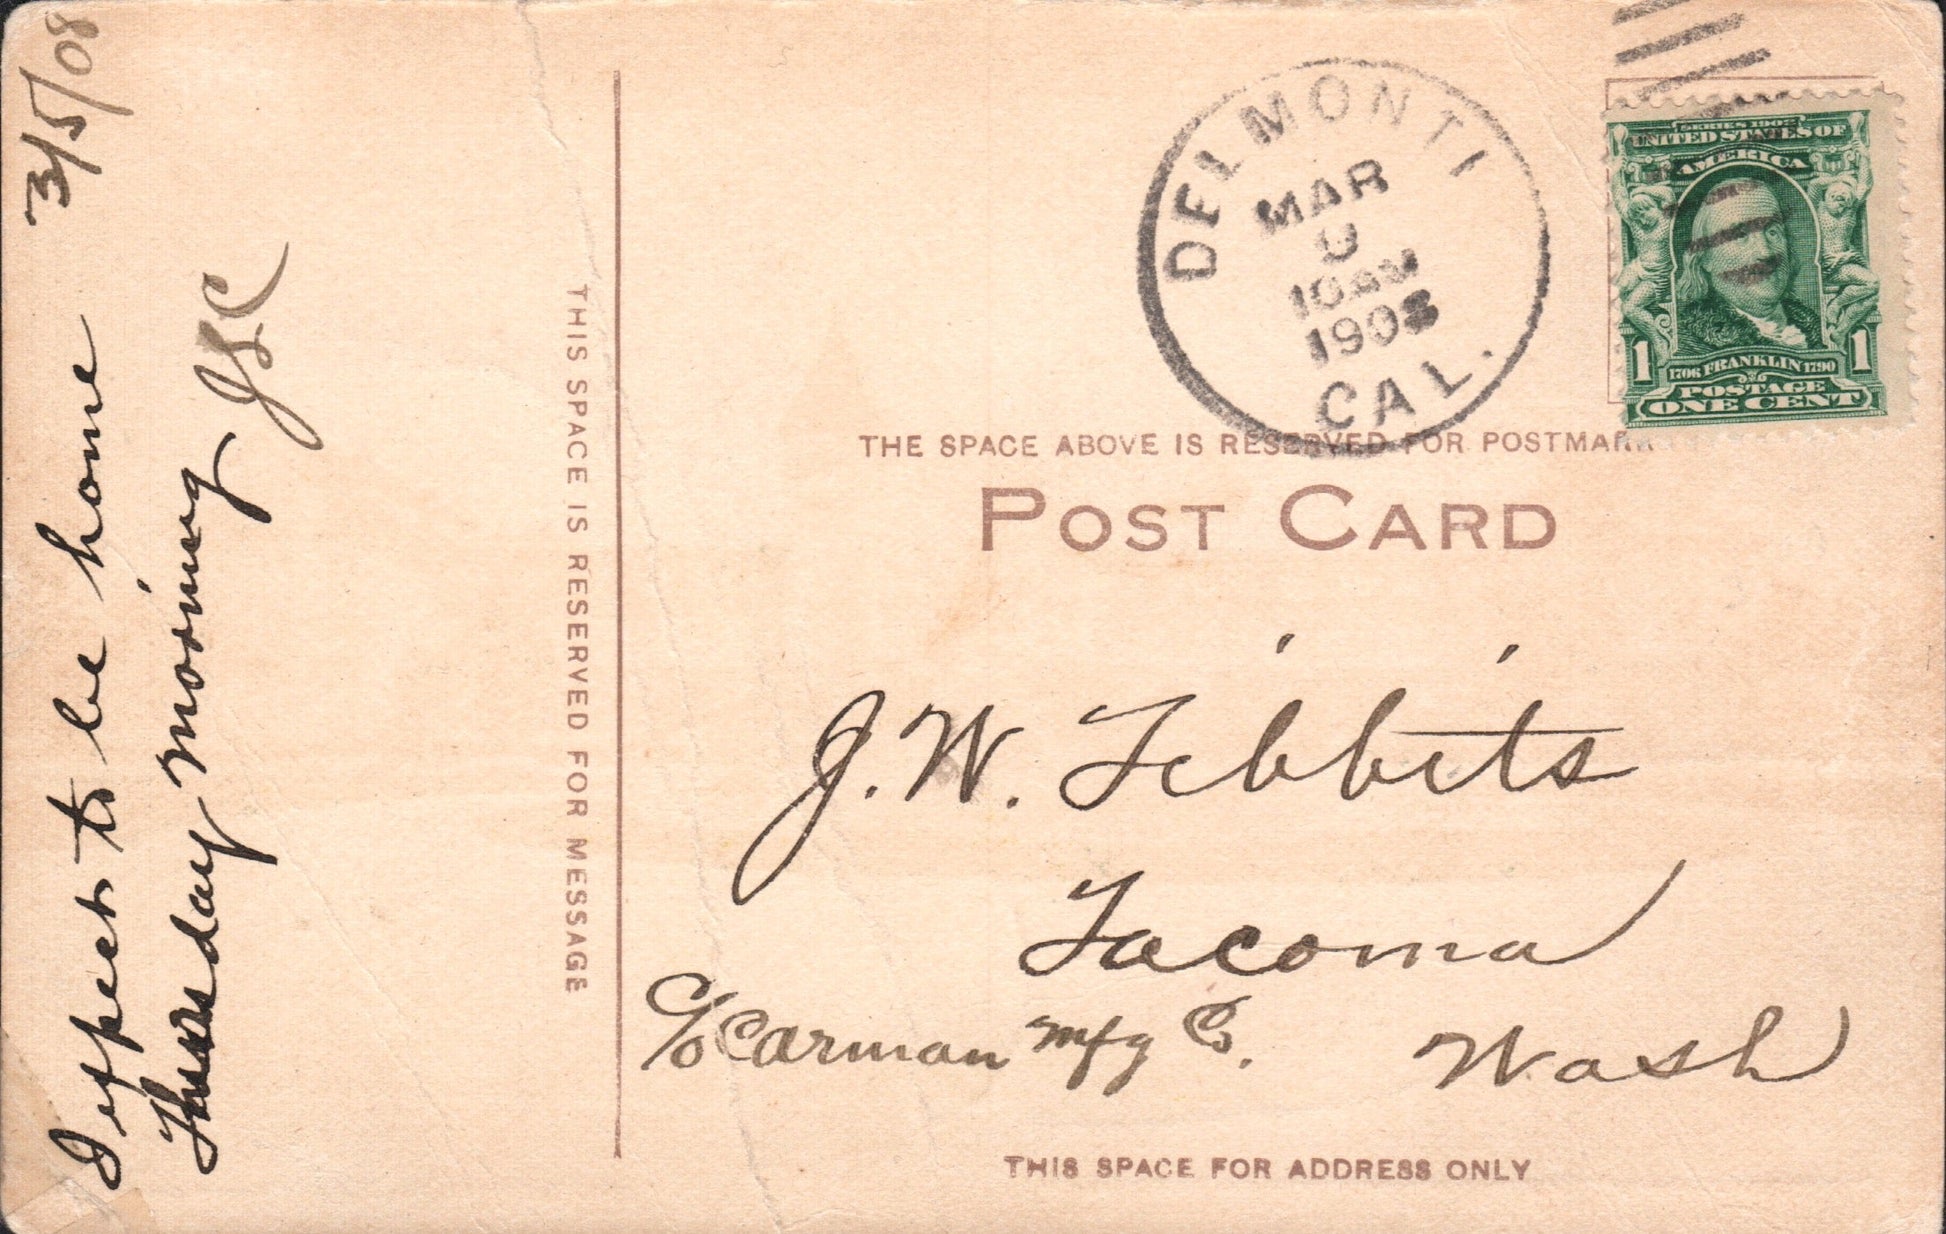 3/5/08
I expect to be home
Thursday morning JSC
THIS SPACE IS RESERVED FOR MESSAGE
DEL MONTE
MAR
9
10 AM
1908
CAL.
SERIES 1902
UNITED STATES OF
AMERICA
1 1706 FRANKLIN 1790 1
POSTAGE
ONE CENT
THE SPACE ABOVE IS RESERVED FOR POSTMARK
POST CARD
J. W. Tibbits
Tacoma
C/o Carman Mfg Co. Wash
THIS SPACE FOR ADDRESS ONLY